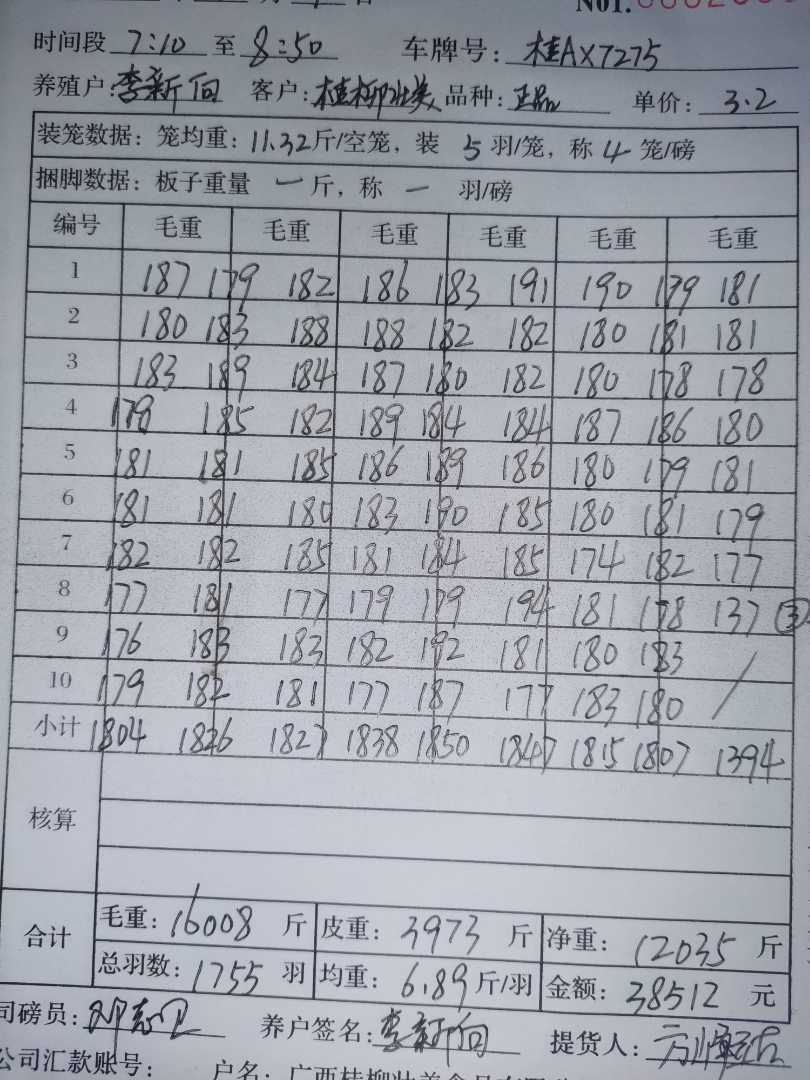 No1.
时间段 7:10 至 8:50 车牌号: 桂AX7275
养殖户: 李新向 客户: 桂柳壮美 品种: 正品 单价: 3.2
装笼数据: 笼均重: 11.32斤/空笼, 装 5 羽/笼, 称 4 笼/磅
捆脚数据: 板子重量 一 斤, 称 一 羽/磅
编号 毛重 毛重 毛重 毛重 毛重 毛重
1 187 179 182 186 183 191 190 179 181
2 180 183 188 188 182 182 180 181 181
3 183 189 184 187 180 182 180 178 178
4 179 185 182 189 184 184 187 186 180
5 181 181 185 186 189 186 180 179 181
6 181 181 180 183 190 185 180 181 179
7 182 182 185 181 184 185 174 182 177
8 177 181 177 179 179 194 181 178 137 ③
9 176 183 183 182 192 181 180 183 /
10 179 182 181 177 187 177 183 180 /
小计 1804 1826 1827 1838 1850 1847 1815 1807 1394
核算
合计 毛重: 16008 斤 皮重: 3973 斤 净重: 12035 斤
总羽数: 1755 羽 均重: 6.89 斤/羽 金额: 38512 元
司磅员: 养户签名: 李新向 提货人:
公司汇款账号: 户名: 广西桂柳壮美食品有限公